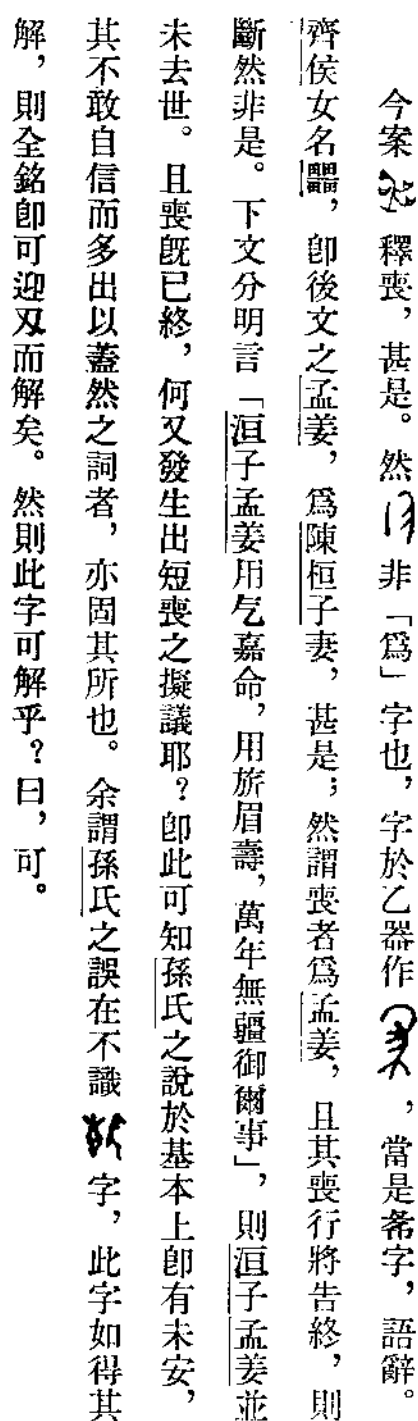 今案釋喪，甚是。然非「爲」字也，字於乙器作，當是𠂔字，語辭。
齊侯女名𤳳，卽後文之孟姜，爲陳桓子妻，甚是；然謂喪者爲孟姜，且其喪行將告終，則
斷然非是。下文分明言「洹子孟姜用气嘉命，用旂眉壽，萬年無疆御爾事」，則洹子孟姜並
未去世。且喪旣已終，何又發生出短喪之擬議耶？卽此可知孫氏之說於基本上卽有未安，
其不敢自信而多出以蓋然之詞者，亦固其所也。余謂孫氏之誤在不識字，此字如得其
解，則全銘卽可迎刃而解矣。然則此字可解乎？曰，可。